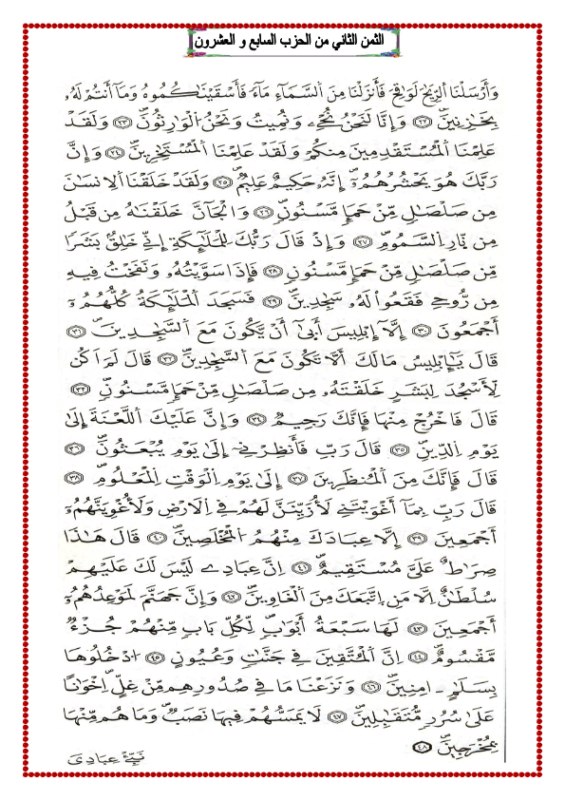 الثمن الثاني من الحزب السابع و العشرون
وَأَرْسَلْنَا الرِّيَٰحَ لَوَٰقِحَ فَأَنزَلْنَا مِنَ السَّمَآءِ مَآءً فَأَسْقَيْنَٰكُمُوهُ وَمَآ أَنتُمْ لَهُۥ
بِخَٰزِنِينَ ٢٢ وَإِنَّا لَنَحْنُ نُحْيِۦ وَنُمِيتُ وَنَحْنُ الْوَٰرِثُونَ ٢٣ وَلَقَدْ
عَلِمْنَا الْمُسْتَقْدِمِينَ مِنكُمْ وَلَقَدْ عَلِمْنَا الْمُسْتَٰخِرِينَ ٢٤ وَإِنَّ
رَبَّكَ هُوَ يَحْشُرُهُمُۥٓ إِنَّهُۥ حَكِيمٌ عَلِيمٌ ٢٥ وَلَقَدْ خَلَقْنَا اَلِانسَٰنَ
مِن صَلْصَٰلٍ مِّنْ حَمَإٍ مَّسْنُونٍ ٢٦ وَالْجَآنَّ خَلَقْنَٰهُ مِن قَبْلُ
مِن نَّارِ السَّمُومِ ٢٧ وَإِذْ قَالَ رَبُّكَ لِلْمَلَٰٓئِكَةِ إِنِّے خَٰلِقٌ بَشَرًا
مِّن صَلْصَٰلٍ مِّنْ حَمَإٍ مَّسْنُونٍ ٢٨ فَإِذَا سَوَّيْتُهُۥ وَنَفَخْتُ فِيهِ
مِن رُّوحِے فَقَعُواْ لَهُۥ سَٰجِدِينَ ٢٩ فَسَجَدَ الْمَلَٰٓئِكَةُ كُلُّهُمُۥٓ
أَجْمَعُونَ ٣٠ إِلَّآ إِبْلِيسَ أَبَىٰٓ أَنْ يَّكُونَ مَعَ السَّٰجِدِينَ ٣١
قَالَ يَٰٓإِبْلِيسُ مَا لَكَ أَلَّا تَكُونَ مَعَ السَّٰجِدِينَ ٣٢ قَالَ لَمَ اَكُن
لِّأَسْجُدَ لِبَشَرٍ خَلَقْتَهُۥ مِن صَلْصَٰلٍ مِّنْ حَمَإٍ مَّسْنُونٍ ٣٣
قَالَ فَاخْرُجْ مِنْهَا فَإِنَّكَ رَجِيمٌ ٣٤ وَإِنَّ عَلَيْكَ اللَّعْنَةَ إِلَىٰ
يَوْمِ الدِّينِ ٣٥ قَالَ رَبِّ فَأَنظِرْنِے إِلَىٰ يَوْمِ يُبْعَثُونَ ٣٦
قَالَ فَإِنَّكَ مِنَ الْمُنظَرِينَ ٣٧ إِلَىٰ يَوْمِ الْوَقْتِ الْمَعْلُومِ ٣٨
قَالَ رَبِّ بِمَآ أَغْوَيْتَنِے لَأُزَيِّنَنَّ لَهُمْ فِے اِلَارْضِ وَلَأُغْوِيَنَّهُمُۥٓ
أَجْمَعِينَ ٣٩ إِلَّا عِبَادَكَ مِنْهُمُ الْمُخْلَصِينَ ٤٠ قَالَ هَٰذَا
صِرَٰطٌ عَلَيَّ مُسْتَقِيمٌ ٤١ اِنَّ عِبَادِے لَيْسَ لَكَ عَلَيْهِمْ
سُلْطَٰنٌ اِلَّا مَنِ اِتَّبَعَكَ مِنَ الْغَاوِينَ ٤٢ وَإِنَّ جَهَنَّمَ لَمَوْعِدُهُمُۥٓ
أَجْمَعِينَ ٤٣ لَهَا سَبْعَةُ أَبْوَٰبٍ لِّكُلِّ بَابٍ مِّنْهُمْ جُزْءٌ
مَّقْسُومٌ ٤٤ اِنَّ الْمُتَّقِينَ فِے جَنَّٰتٍ وَعُيُونٍ ٤٥ اُدْخُلُوهَا
بِسَلَٰمٍ اٰمِنِينَ ٤٦ وَنَزَعْنَا مَا فِے صُدُورِهِم مِّنْ غِلٍّ اِخْوَٰنًا
عَلَىٰ سُرُرٍ مُّتَقَٰبِلِينَ ٤٧ لَا يَمَسُّهُمْ فِيهَا نَصَبٌ وَمَا هُم مِّنْهَا
بِمُخْرَجِينَ ٤٨
نَبِّئْ عِبَادِيَ